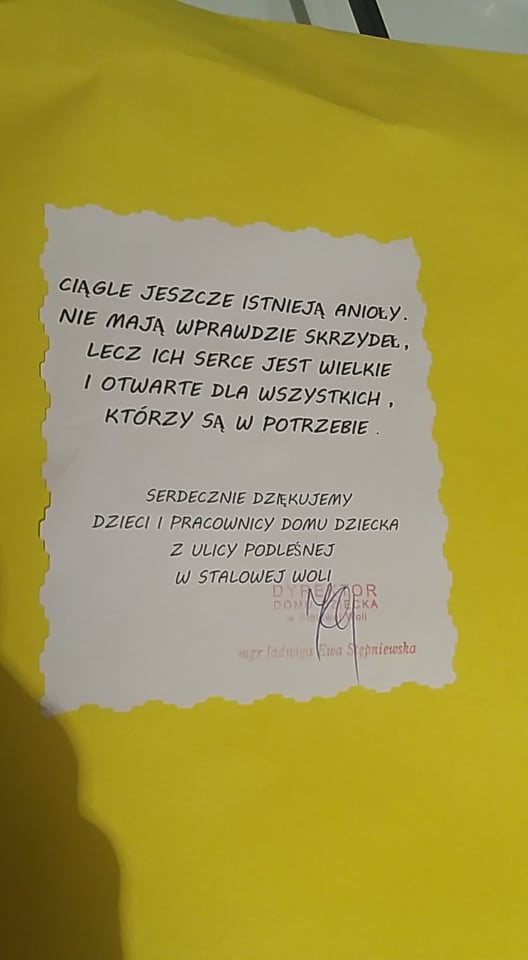 CIĄGLE JESZCZE ISTNIEJĄ ANIOŁY.
NIE MAJĄ WPRAWDZIE SKRZYDEŁ,
LECZ ICH SERCE JEST WIELKIE
I OTWARTE DLA WSZYSTKICH,
KTÓRZY SĄ W POTRZEBIE.
SERDECZNIE DZIĘKUJEMY
DZIECI I PRACOWNICY DOMU DZIECKA
Z ULICY PODLEŚNEJ
W STALOWEJ WOLI
DYREKTOR
DOMU DZIECKA
w Stalowej Woli
mgr Jadwiga Ewa Stępniewska